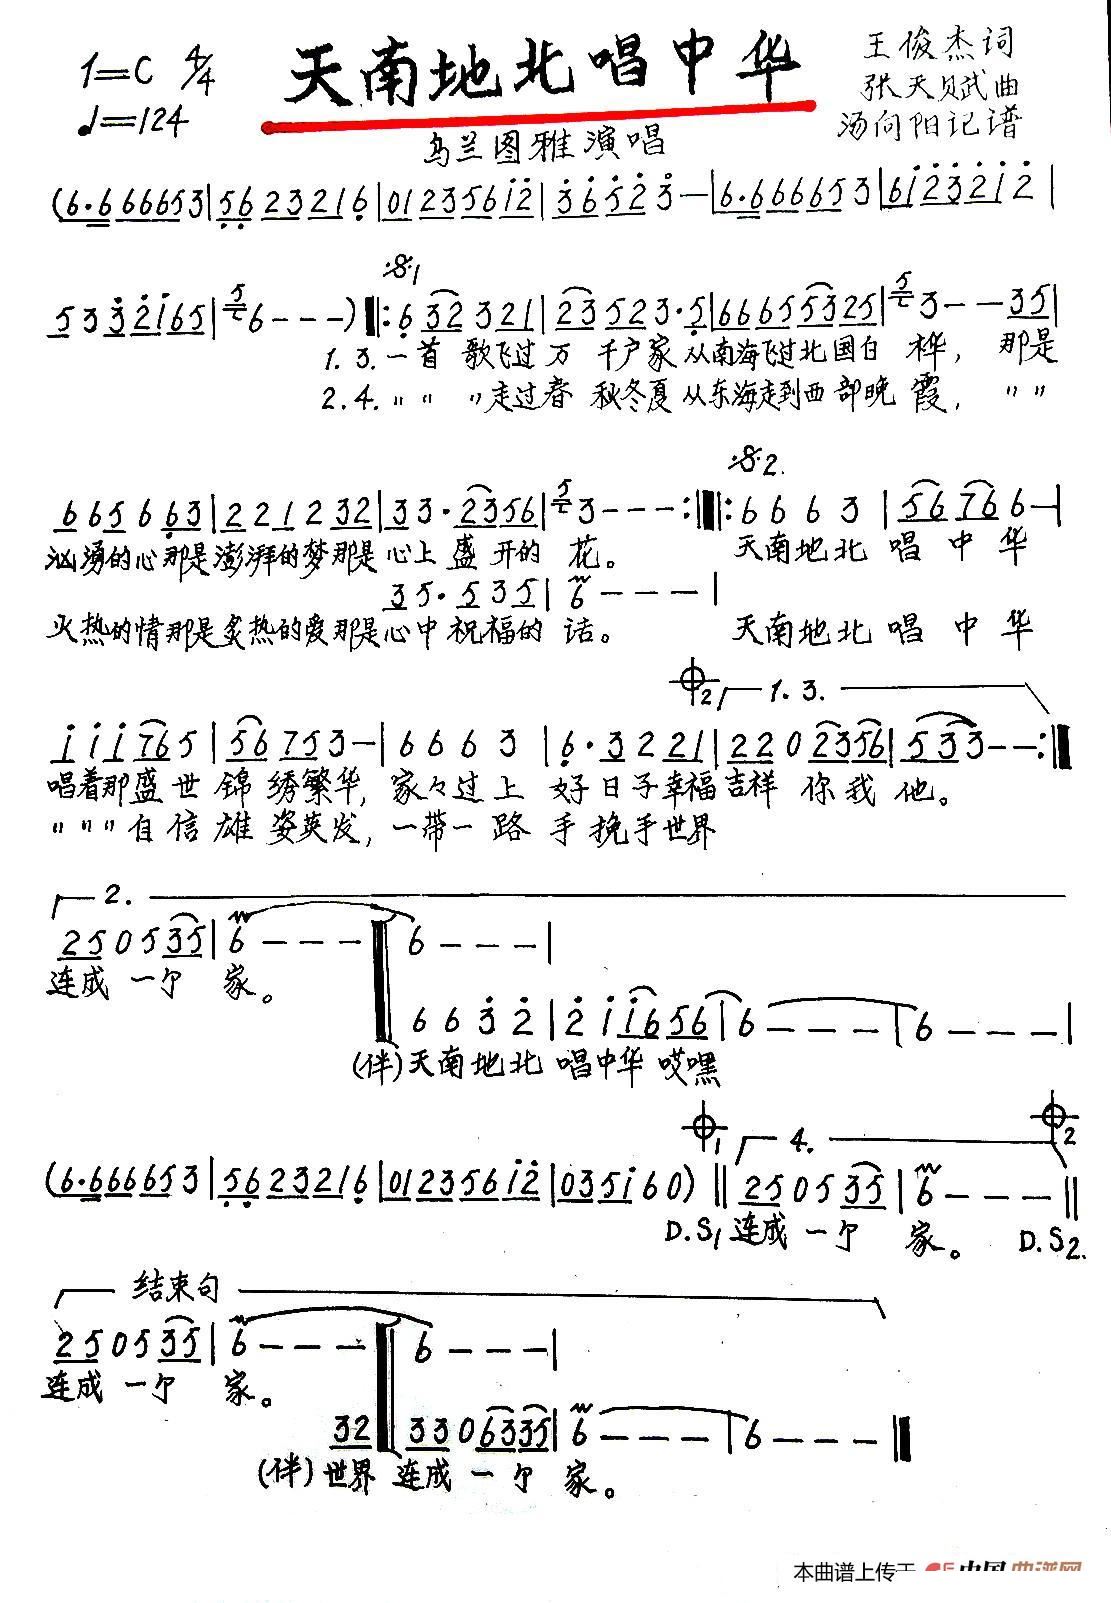 1=C 4/4
♩=124
天南地北唱中华
王俊杰词
张天赋曲
汤向阳记谱
乌兰图雅演唱
(6·6 666653|56 23216|01235612|3652 3—|6·6 66653|612321 2|
5 3 3 2 1 6 5|5 6 - - -)‖: 6 32 3 21|23 523·5|66655 5325|5 3 - - 35|
1. 3. 一首 歌飞过 万 千户家 从南海飞过北国白 桦， 那是
2. 4. 〃 〃 〃走过春 秋冬夏 从东海走到西部晚 霞， 〃 〃
6 65 6 63|22 1 2 32|3 3·2356|5 3 - - - :‖: 6 6 6 3 |56 76 6 -|
汹涌的心那是澎湃的梦那是心上 盛 开的 花。 天南地北 唱 中 华
3 5·5 35|6 - - -|
火热的情那是炙热的爱那是心中 祝福的 话。 天南地北 唱 中 华
2 1. 3.
1 1 1 76 5|56 75 3 -|6 6 6 3|6·3 2 21|22 0 2356|5 3 3 - - :‖
唱着那盛 世 锦 绣繁华， 家々过上 好日子幸福吉祥 你我 他。
〃 〃 〃 自信雄 姿英发， 一带一 路 手 挽手世界
2.
25 0 5 35|6 - - -‖6 - - -|
连成 一个 家。
6 6 3 2|2 1 16 56|6 - - -|6 - - -|
(伴)天南地北 唱中华 哎嘿
1 4. 2
(6·6 666653|56 23216|01235612|0351 6 0)‖25 0 5 35|6 - - -‖
D.S1 连成 一个 家。 D.S2.
结束句
25 0 5 35|6 - - -‖6 - - -|
连成 一个 家。
32‖33 0 6335|6 - - -|6 - - -‖
(伴)世界 连成 一个 家。
本曲谱上传于 中国曲谱网